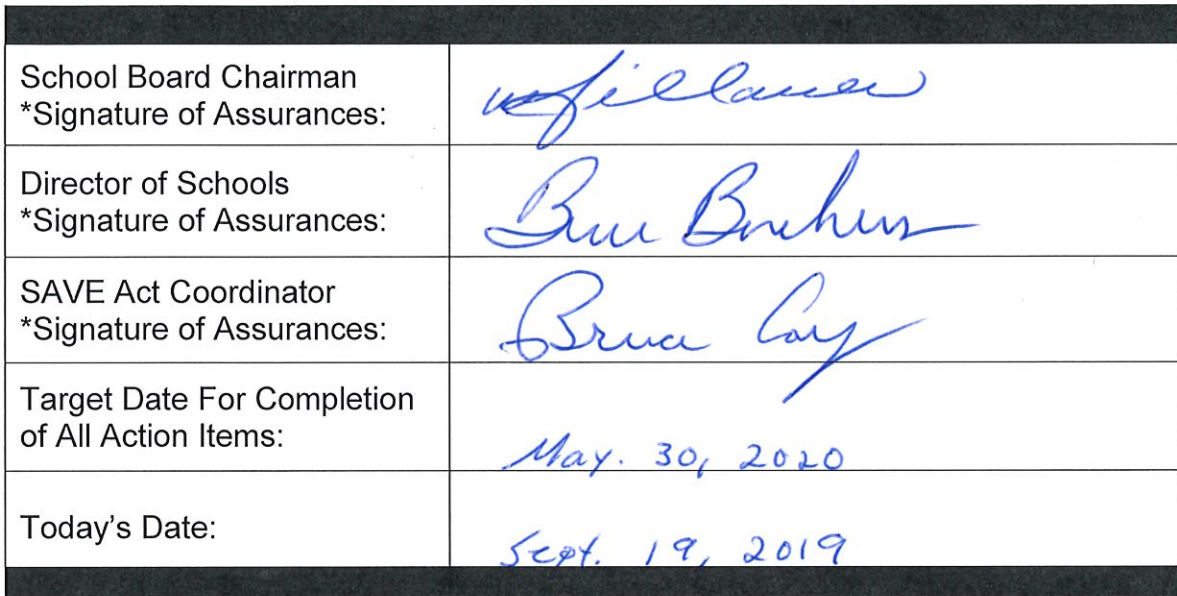 School Board Chairman
*Signature of Assurances:
Director of Schools
*Signature of Assurances:
SAVE Act Coordinator
*Signature of Assurances:
Bruce
Target Date For Completion
of All Action Items:
May. 30, 2020
Today's Date:
Sept. 19, 2019